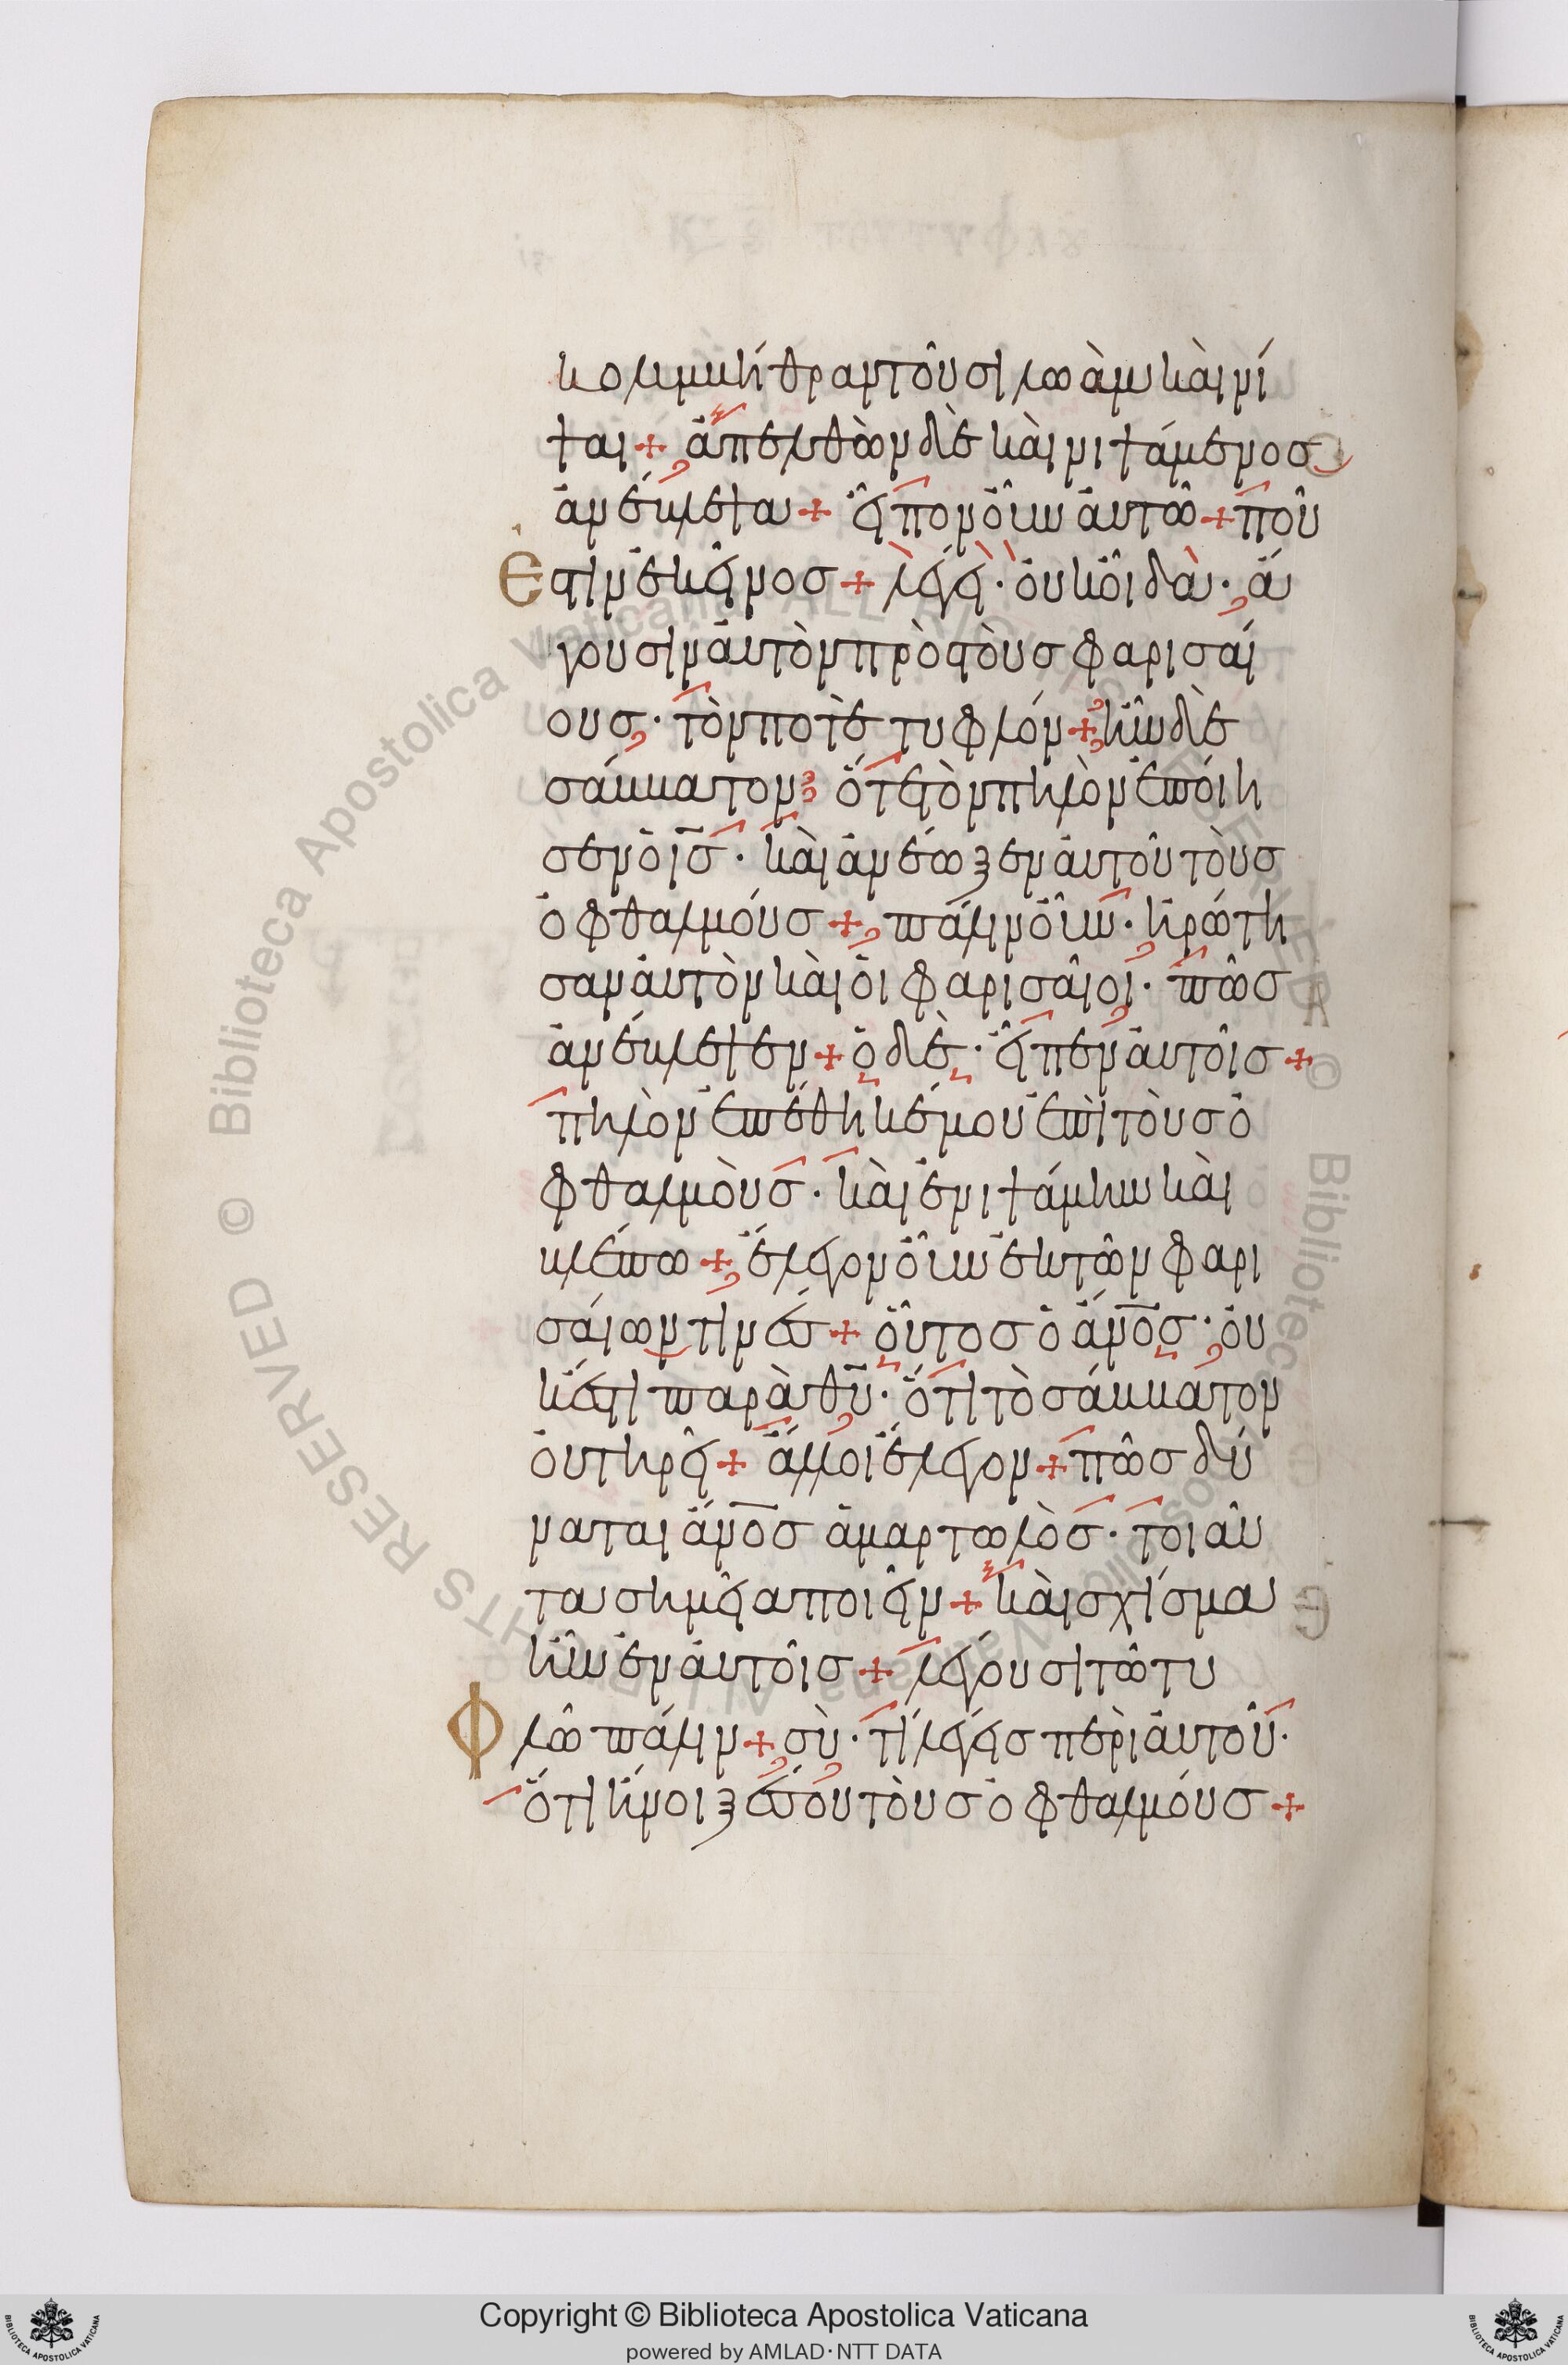 κολυμβήθραν τοῦ σιλωὰμ καὶ νί
ψαι + ἀπελθὼν δὲ καὶ νιψάμενος
ἀνέβλεψα + εἶπον οὖν αὐτῶ + ποῦ
ἐστιν ἐκεῖνος + λέγει · οὐκ οἶδα · ἄ
γουσιν αὐτὸν πρὸς τοὺς φαρισαί
ους · τόν ποτὲ τυφλόν + ἦν δὲ
σάββατον ὅτε τὸν πηλὸν ἐποίη
σεν ὁ ις · καὶ ἀνέωξεν αὐτοῦ τοὺς
ὀφθαλμούς + πάλιν οὖν · ἠρώτη
σαν αὐτὸν καὶ οἱ φαρισαῖοι · πῶς
ἀνέβλεψεν + ὁ δὲ · εἶπεν αὐτοῖς +
πηλὸν ἐπέθηκέ μου ἐπὶ τοὺς ὀ
φθαλμοὺς · καὶ ἐνιψάμην καὶ
βλέπω + ἔλεγον οὖν ἐκ τῶν φαρι
σαίων τινές + οὗτος ὁ ἄνος · οὐ
κ ἔστι παρὰ θυ · ὅτι τὸ σάββατον
οὐ τηρεῖ + ἄλλοι ἔλεγον + πῶς δύ
ναται ἄνος ἁμαρτωλὸς · τοιαῦ
τα σημεῖα ποιεῖν + καὶ σχίσμα
ἦν ἐν αὐτοῖς + λέγουσι τῶ τυ
φλῶ πάλιν + σὺ · τί λέγεις περὶ αὐτοῦ ·
ὅτι ἤνοιξέ σου τοὺς ὀφθαλμούς +
Copyright © Biblioteca Apostolica Vaticana
powered by AMLAD·NTT DATA